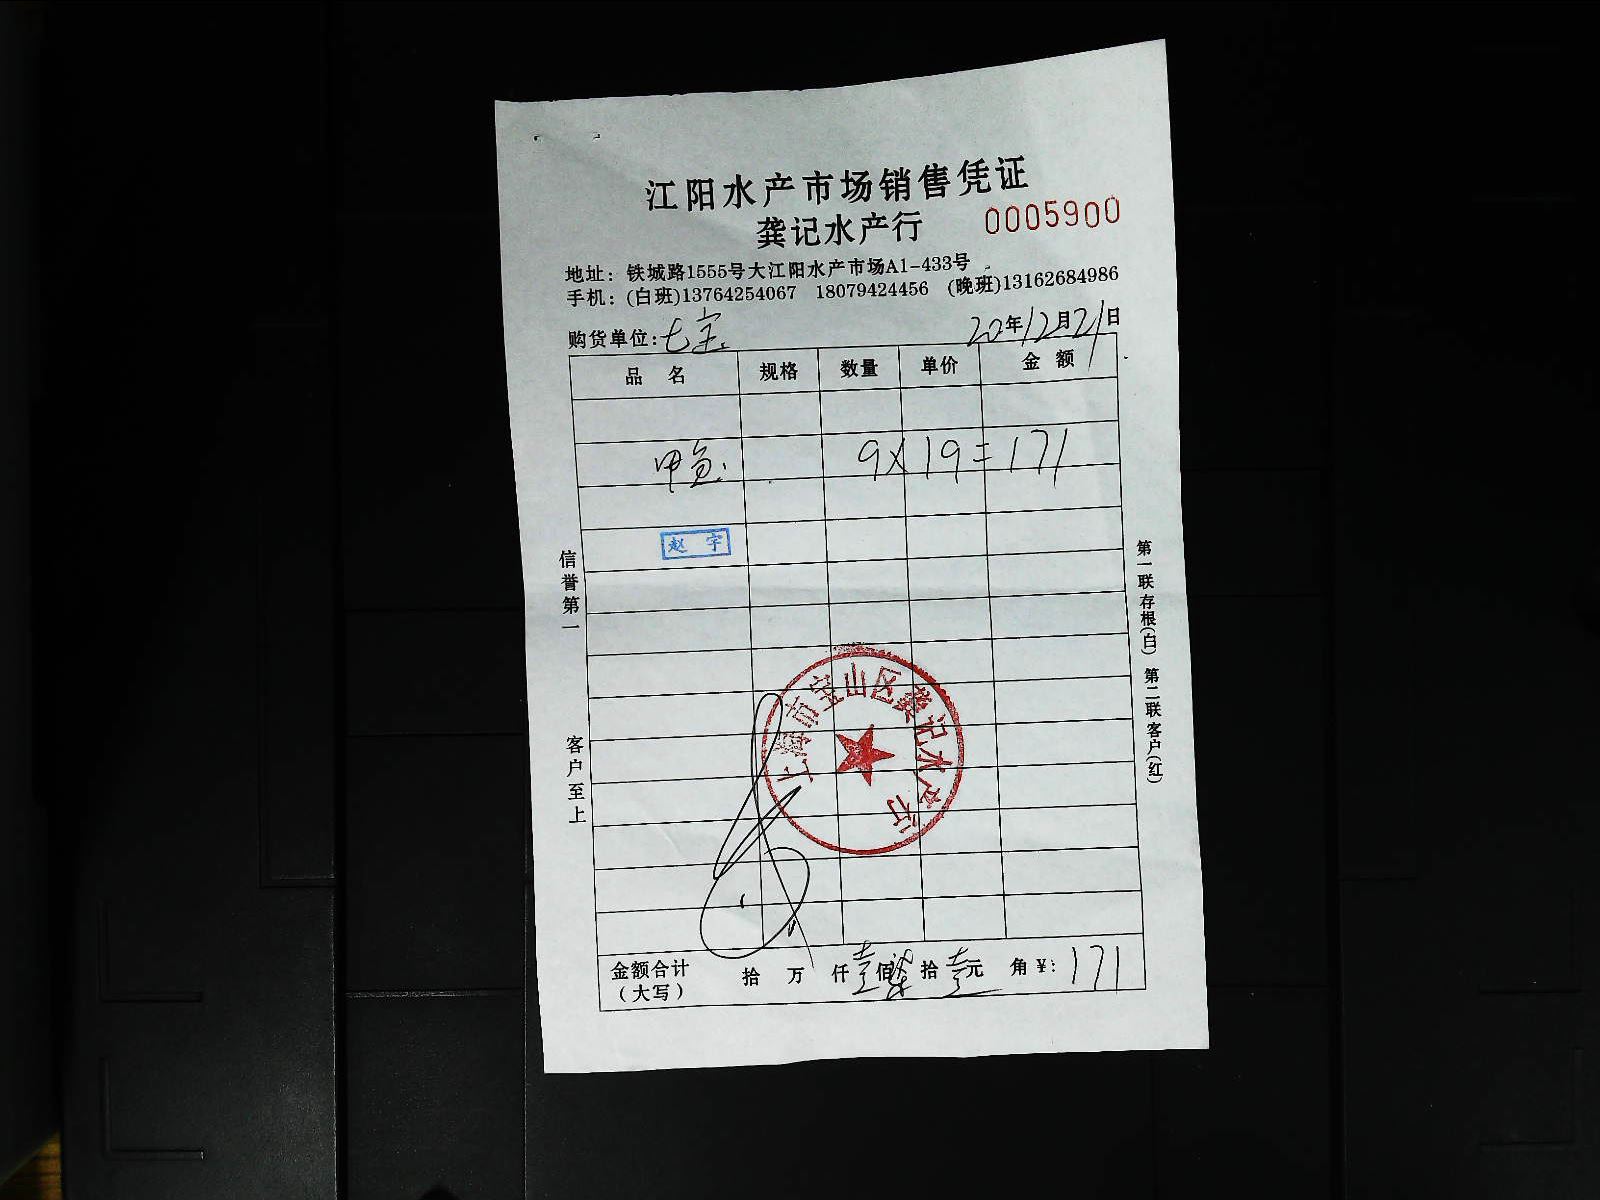 江阳水产市场销售凭证
龚记水产行 0005900
地址：铁城路1555号大江阳水产市场A1-433号
手机：(白班)13764254067 18079424456 (晚班)13162684986
购货单位：七宝 20年12月21日
品名 规格 数量 单价 金额
甲鱼 9×19=171
赵宇
信誉第一
客户至上
第一联存根(白) 第二联客户(红)
上海市宝山区龚记水产行
金额合计（大写） 拾 万 仟壹佰柒拾壹元 角￥：171